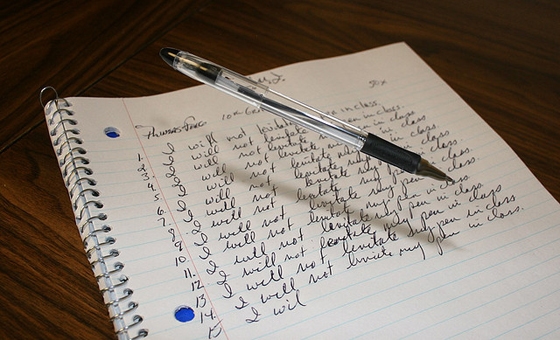 Thomas
50x
1. I will not levitate in class.
2. I will not levitate pen in class.
3. I will not levitate my pen in class.
4. I will not levitate my pen in class.
5. I will not levitate my pen in class.
6. I will not levitate my pen in class.
7. I will not levitate my pen in class.
8. I will not levitate my pen in class.
9. I will not levitate my pen in class.
10. I will not levitate my pen in class.
11. I will not levitate my pen in class.
12. I will not levitate my pen in class.
13. I will not levitate my pen in class.
14. I will not levitate my pen in class.
15 I wil